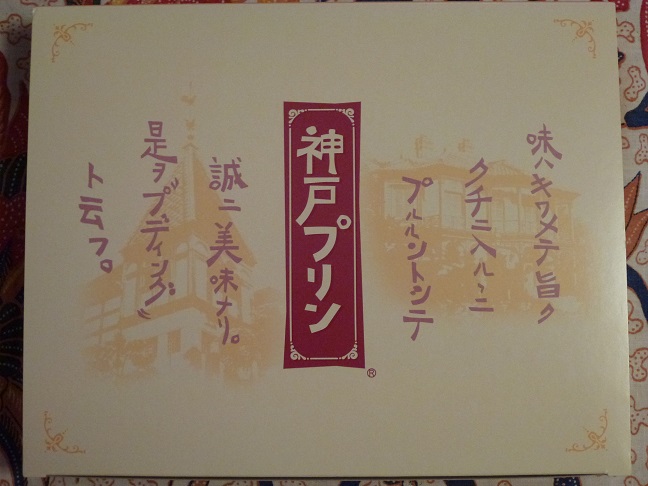 味ハキワメテ旨ク
クチニ入ルヽニ
プルルントシテ
神戸プリン
®
誠ニ美味ナリ。
是ヲ〝プディング〟
ト云フ。